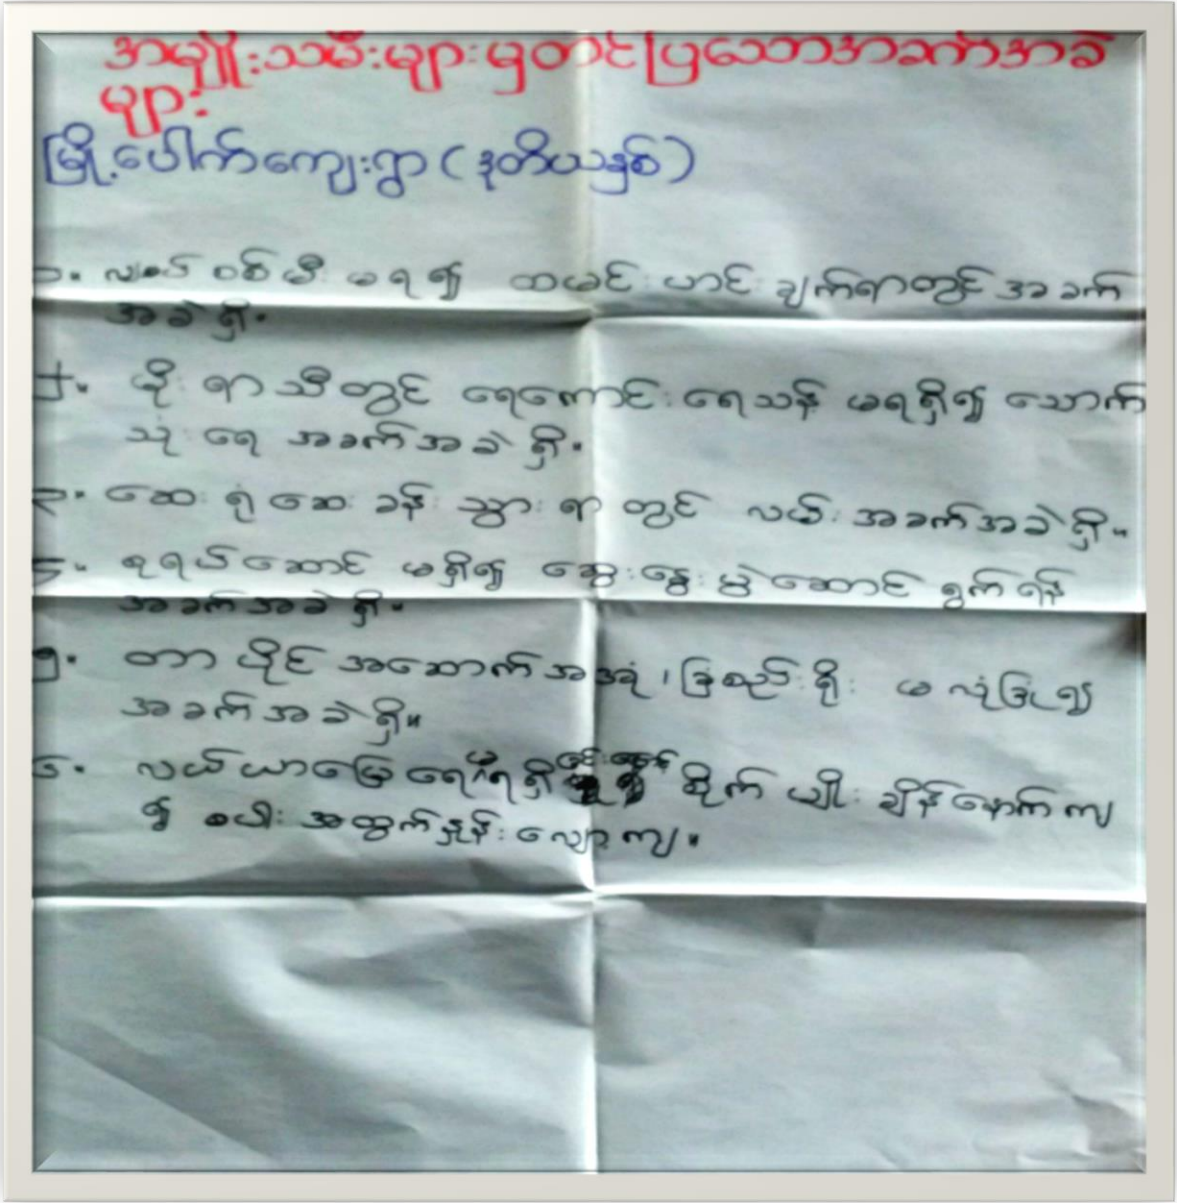 အမျိုးသမီးများမှတင်ပြသောအခက်အခဲ
များ
မြို့ပေါက်ကျေးရွာ (ဒုတိယနှစ်)
၁။ လျှပ်စစ်မီး မရ၍ ထမင်းဟင်းချက်ရာတွင် အခက်
အခဲရှိ။
၂။ မိုးရာသီတွင် ရေကောင်းရေသန့် မရရှိ၍ သောက်
သုံးရေ အခက်အခဲရှိ။
၃။ ဆေးရုံဆေးခန်း သွားရာတွင် လမ်းအခက်အခဲရှိ။
၄။ စုရပ်ဆောင် မရှိ၍ ဆွေးနွေးပွဲဆောင်ရွက်ရန်
အခက်အခဲရှိ။
၅။ တာပိုင်အဆောက်အအုံ၊ ခြံစည်းရိုး မလုံခြုံ၍
အခက်အခဲရှိ။
၆။ လယ်ယာမြေရေမရရှိ စိုက်ပျိုးချိန်နောက်ကျ
၍ စပါးအထွက်နှုန်းလျော့ကျ။